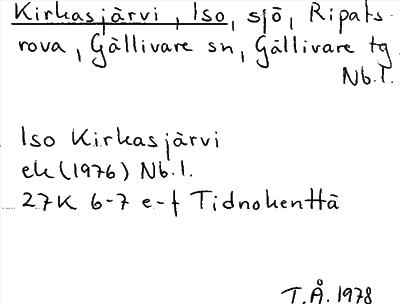 Kirkasjärvi, Iso, sjö, Ripats-
rova, Gällivare sn, Gällivare tg
Nb.l.
Iso Kirkasjärvi
ek (1976) Nb.l.
27K 6-7 e-f Tidnokenttä
T.Å. 1978